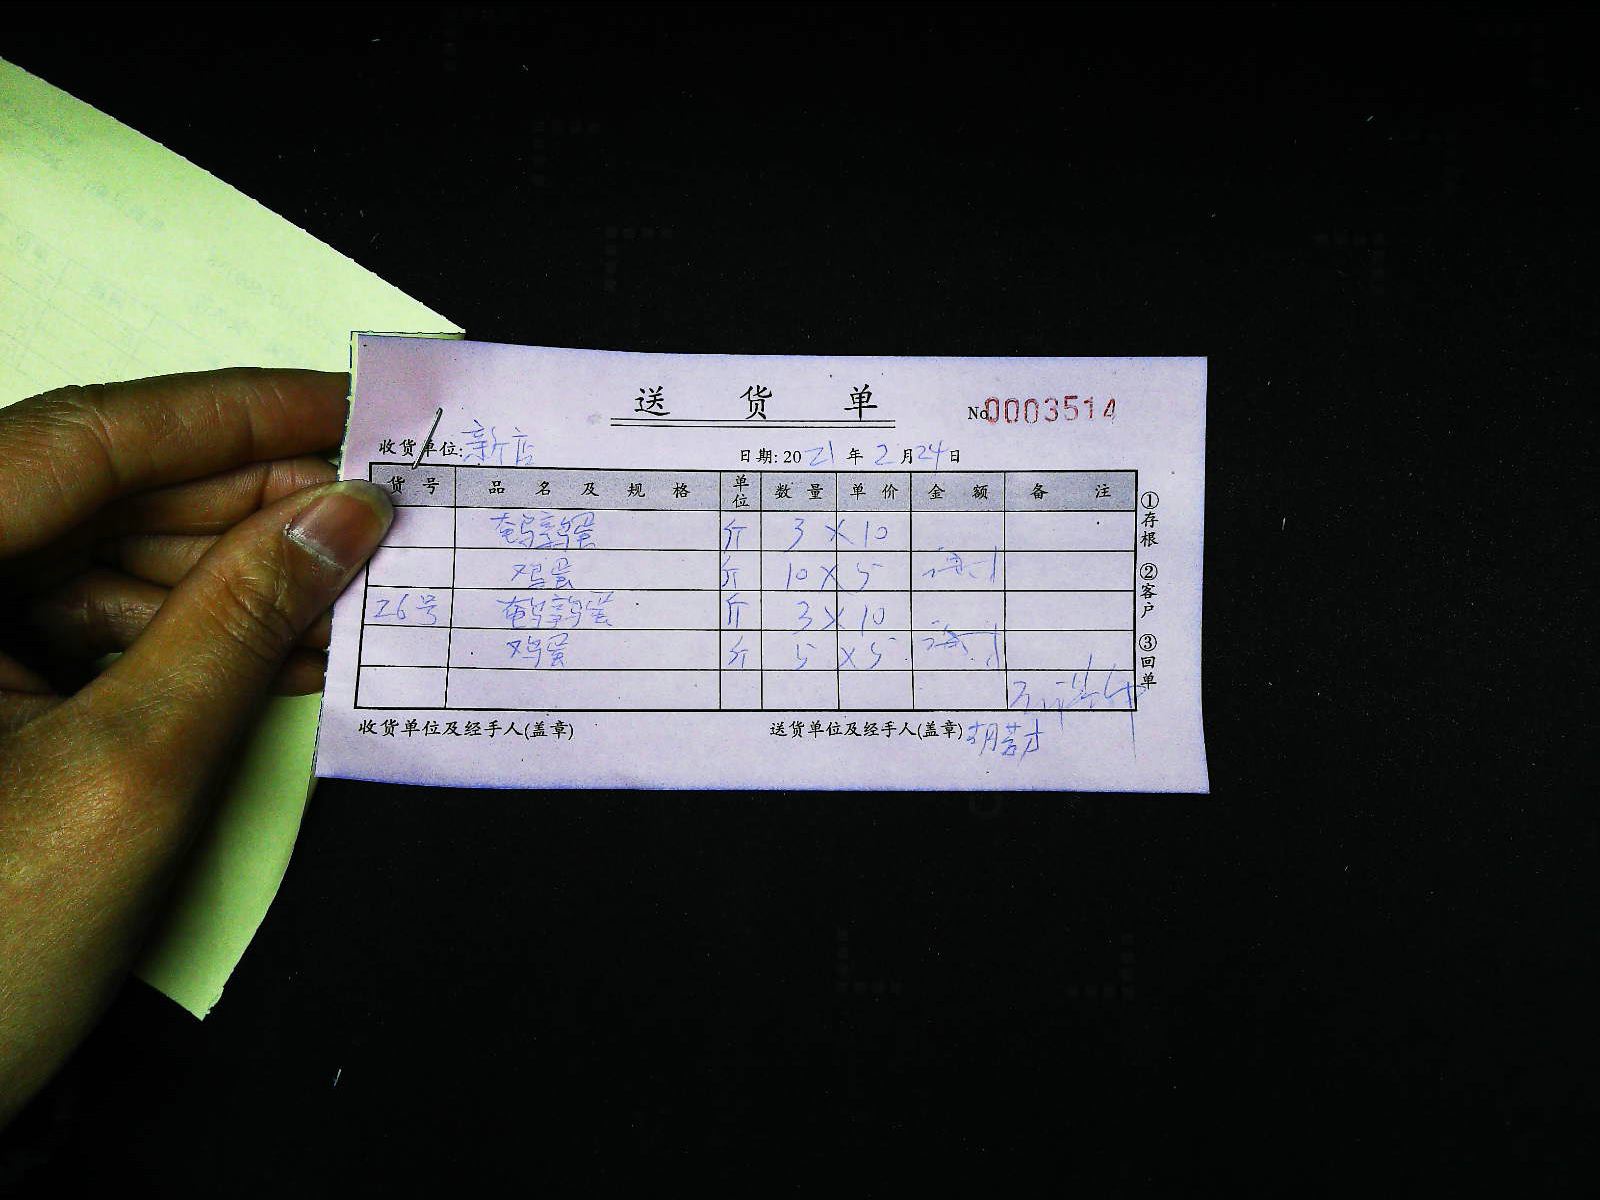 送货单
No.0003514
收货单位:新店 日期:2021年2月24日
货号 品名及规格 单位 数量 单价 金额 备注
鹌鹑蛋 斤 3×10
鸡蛋 斤 10×5
26号 鹌鹑蛋 斤 3×10
鸡蛋 斤 5×5
收货单位及经手人(盖章) 送货单位及经手人(盖章)
①存根 ②客户 ③回单